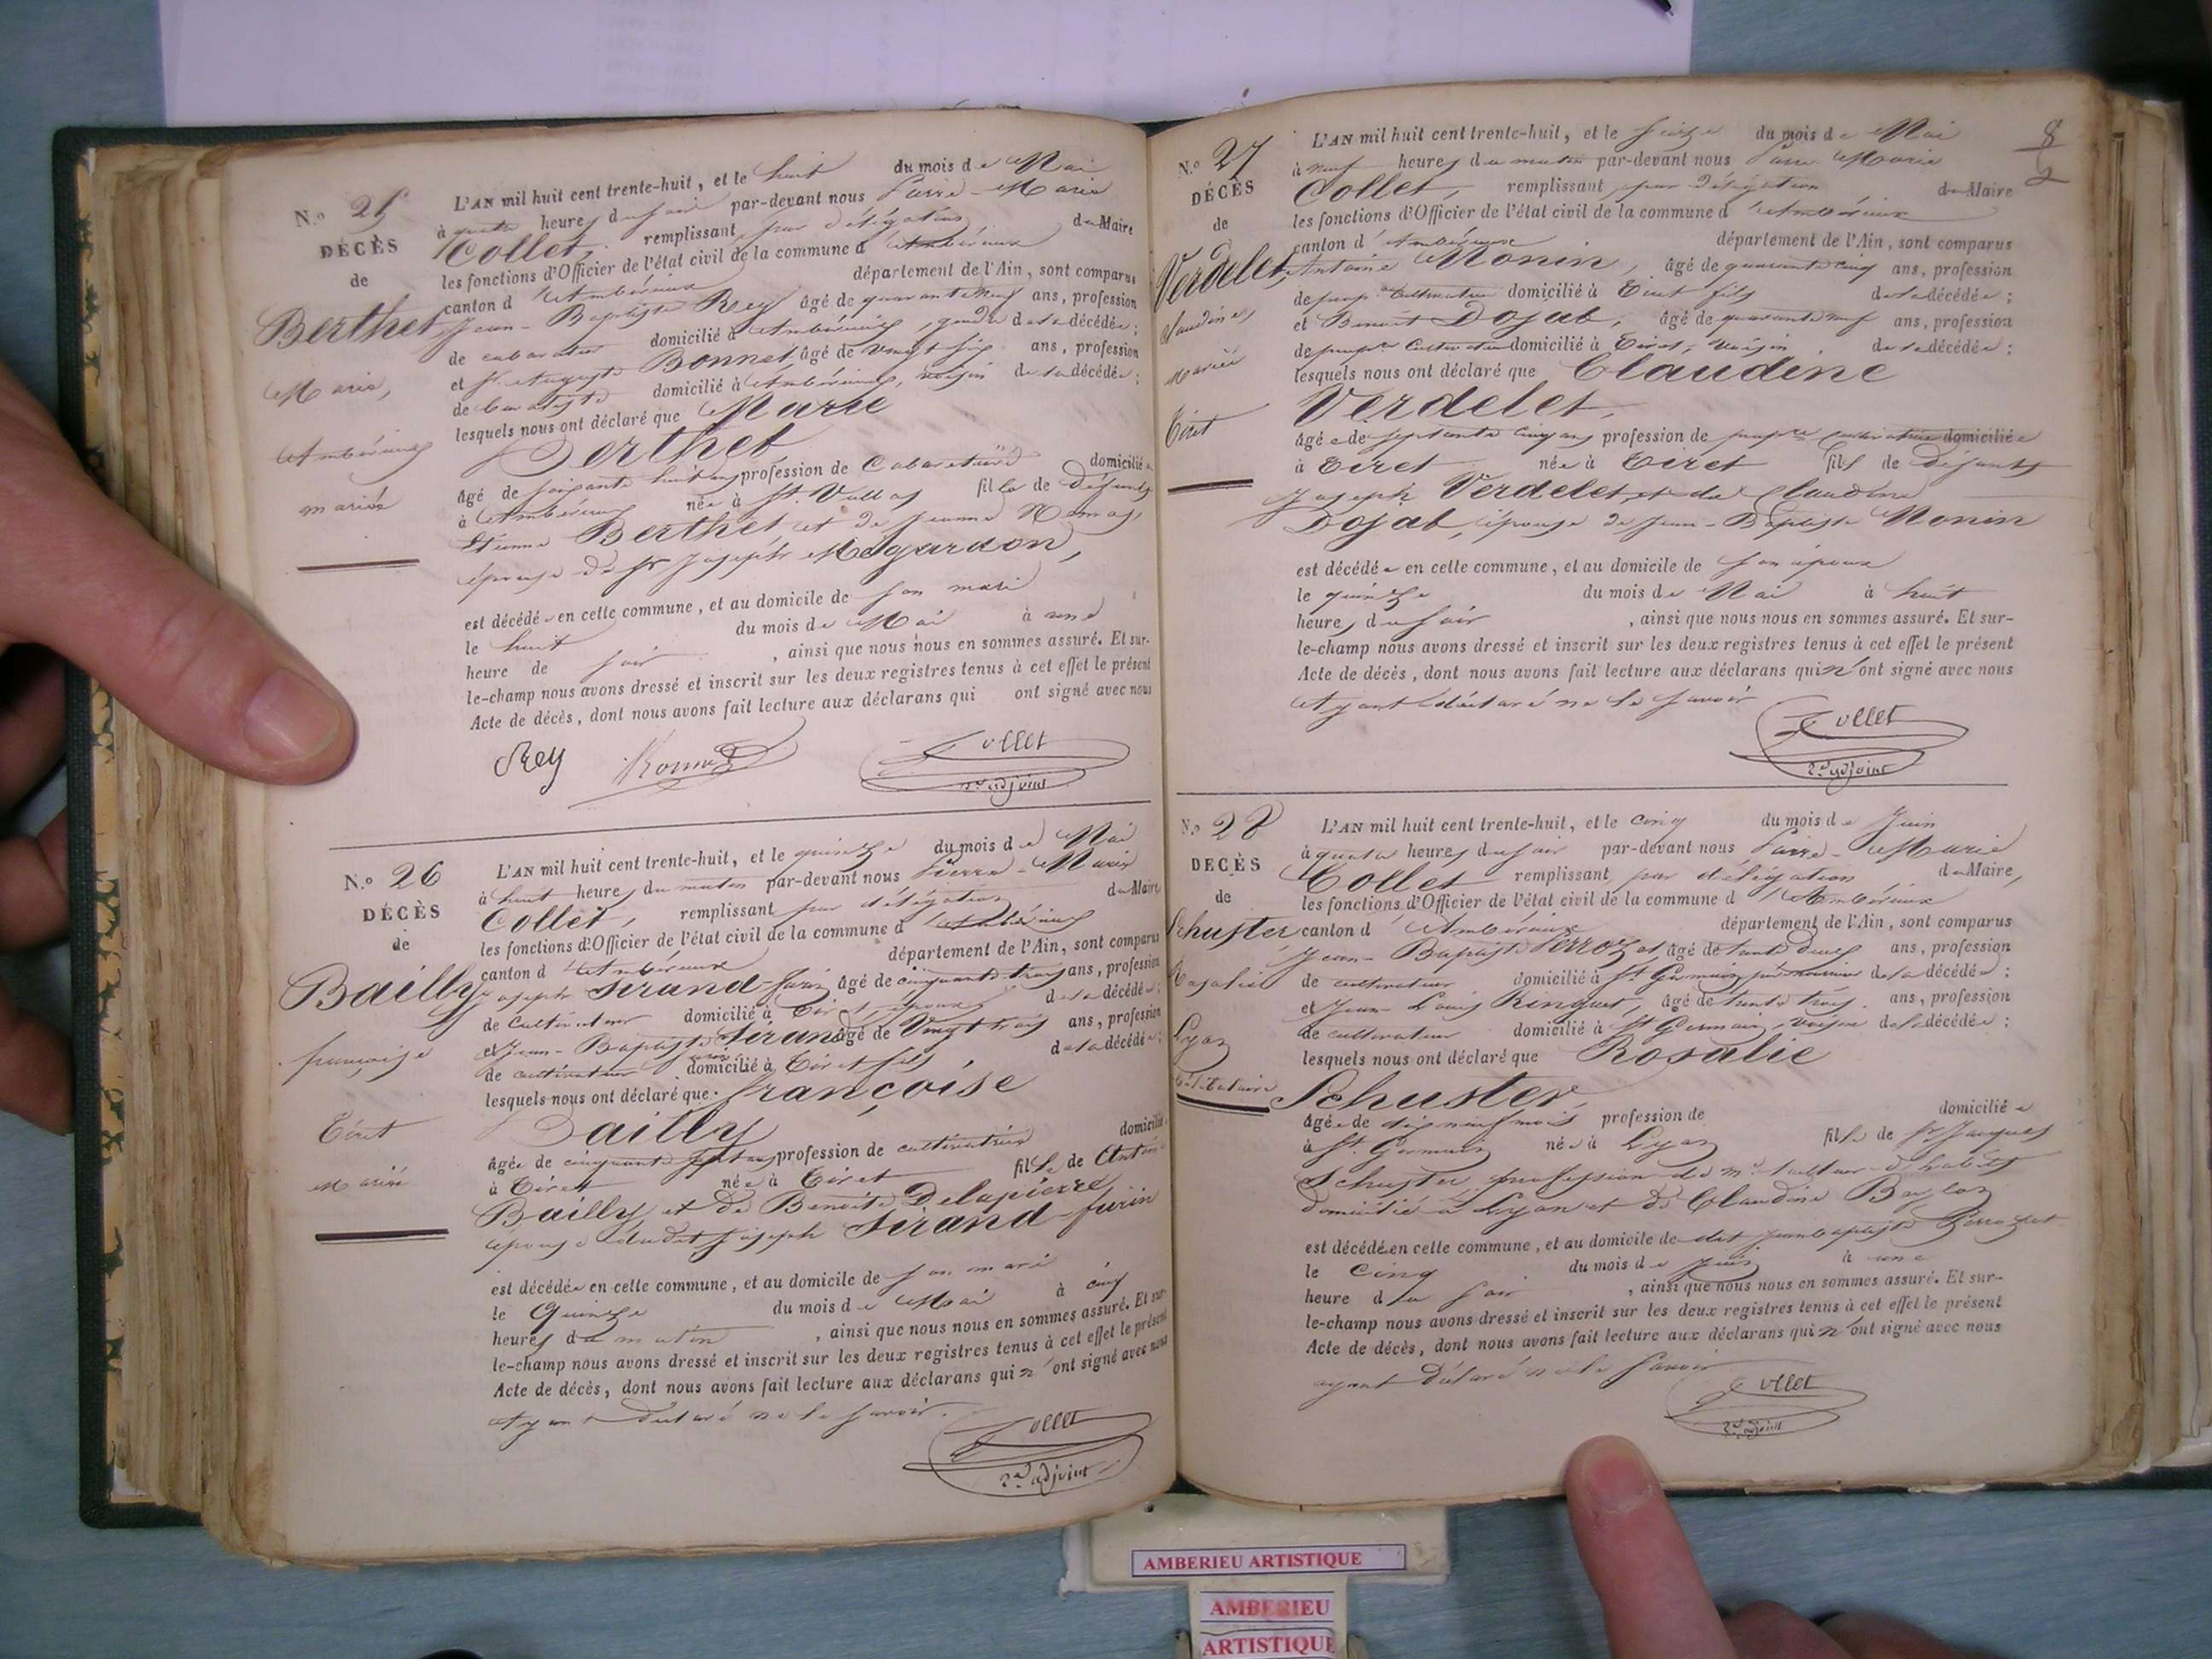 N.º 25
DÉCÈS
de
Berthet
Marie,
Ambérieux
mariée
L'AN mil huit cent trente-huit, et le huit du mois de Mai
à quatre heures du soir par-devant nous Pierre-Marie
Collet, remplissant par délégation du Maire
les fonctions d'Officier de l'état civil de la commune d'Ambérieux
canton d'Ambérieux département de l'Ain, sont comparus
Jean-Baptiste Rey âgé de quarante neuf ans, profession
de cabaretier domicilié à Ambérieux, gendre de la décédée;
et Sr. Auguste Bonnet, âgé de vingt six ans, profession
de domicilié à Ambérieux, voisin de la décédée;
lesquels nous ont déclaré que Marie
Berthet
âgé de soixante huit ans profession de Cabaretière domiciliée
à Ambérieux née à St. fille de défunts
Étienne Berthet et de Jeanne
épouse de Sr Joseph Mégardon,
est décédée en cette commune, et au domicile de son mari
le huit du mois de Mai à une
heure de soir, ainsi que nous nous en sommes assuré. Et sur-
le-champ nous avons dressé et inscrit sur les deux registres tenus à cet effet le présent
Acte de décès, dont nous avons fait lecture aux déclarans qui ont signé avec nous
Rey Bonnet Collet
2.d adjoint
N.º 26
DÉCÈS
de
Bailly
françoise
Tiret
Mariée
L'AN mil huit cent trente-huit, et le quinze du mois de Mai
à huit heures du matin par-devant nous Pierre-Marie
Collet, remplissant par délégation du Maire
les fonctions d'Officier de l'état civil de la commune d'Ambérieux
canton d'Ambérieux département de l'Ain, sont comparus
Joseph Sirand-furin âgé de cinquante trois ans, profession
de Cultivateur domicilié à Tiret, époux de la décédée;
et Jean-Baptiste Sirand furin âgé de Vingt trois ans, profession
de cultivateur domicilié à Tiret fils de la décédée;
lesquels nous ont déclaré que françoise
Bailly
âgée de cinquante sept ans profession de cultivatrice domiciliée
à Tiret née à Tiret fille de Antoine
Bailly et de Benoite Delapierre,
épouse dudit Joseph Sirand-furin
est décédée en cette commune, et au domicile de son mari
le Quinze du mois de Mai à cinq
heures du matin, ainsi que nous nous en sommes assuré. Et sur-
le-champ nous avons dressé et inscrit sur les deux registres tenus à cet effet le présent
Acte de décès, dont nous avons fait lecture aux déclarans qui n'ont signé avec nous
Ayant déclaré ne le savoir.
Collet
2.d adjoint
8
2
N.º 27
DÉCÈS
de
Verdelet
Claudine
Mariée
Tiret
L'AN mil huit cent trente-huit, et le seize du mois de Mai
à neuf heures du matin par-devant nous Pierre Marie
Collet, remplissant par délégation du Maire
les fonctions d'Officier de l'état civil de la commune d'Ambérieux
canton d'Ambérieux département de l'Ain, sont comparus
Antoine Monin, âgé de quarante cinq ans, profession
de prop.re Cultivateur domicilié à Tiret fils de la décédée;
et Benoit Dojat, âgé de quarante neuf ans, profession
de prop.re Cultivateur domicilié à Tiret, voisin de la décédée;
lesquels nous ont déclaré que Claudine
Verdelet,
âgée de septante cinq ans profession de prop.re cultivatrice domiciliée
à Tiret née à Tiret fille de défunts
Joseph Verdelet et de Claudine
Dojat, épouse de Jean-Baptiste Monin
est décédée en cette commune, et au domicile de son époux
le quinze du mois de Mai à huit
heures du soir, ainsi que nous nous en sommes assuré. Et sur-
le-champ nous avons dressé et inscrit sur les deux registres tenus à cet effet le présent
Acte de décès, dont nous avons fait lecture aux déclarans qui n'ont signé avec nous
Ayant déclaré ne le savoir
Collet
2.d adjoint
N.º 28
DÉCÈS
de
Schuster
Rosalie
Lyon
Célibataire
L'AN mil huit cent trente-huit, et le cinq du mois de Juin
à quatre heures du soir par-devant nous Pierre-Marie
Collet remplissant, par délégation, du Maire,
les fonctions d'Officier de l'état civil de la commune d'Ambérieux
canton d'Ambérieux département de l'Ain, sont comparus
Jean-Baptiste Perrozet, âgé de trente deux ans, profession
de cultivateur domicilié à St Germain, père nourricier de la décédée;
et Jean-Louis Ringuet, âgé de trente trois ans, profession
de cultivateur domicilié à St Germain, voisin de la décédée;
lesquels nous ont déclaré que Rosalie
Schuster,
âgée de dix neuf mois profession de domiciliée
à St. Germain née à Lyon fille de Sr Jacques
Schuster profession de m.d tailleur d'habits
domicilié à Lyon et de Claudine
est décédée en cette commune, et au domicile de dit Jean baptiste Perrozet
le Cinq du mois de Juin à une
heure du soir, ainsi que nous nous en sommes assuré. Et sur-
le-champ nous avons dressé et inscrit sur les deux registres tenus à cet effet le présent
Acte de décès, dont nous avons fait lecture aux déclarans qui n'ont signé avec nous
ayant déclaré ne le savoir
Collet
2.d adjoint
AMBERIEU ARTISTIQUE
AMBERIEU
ARTISTIQUE